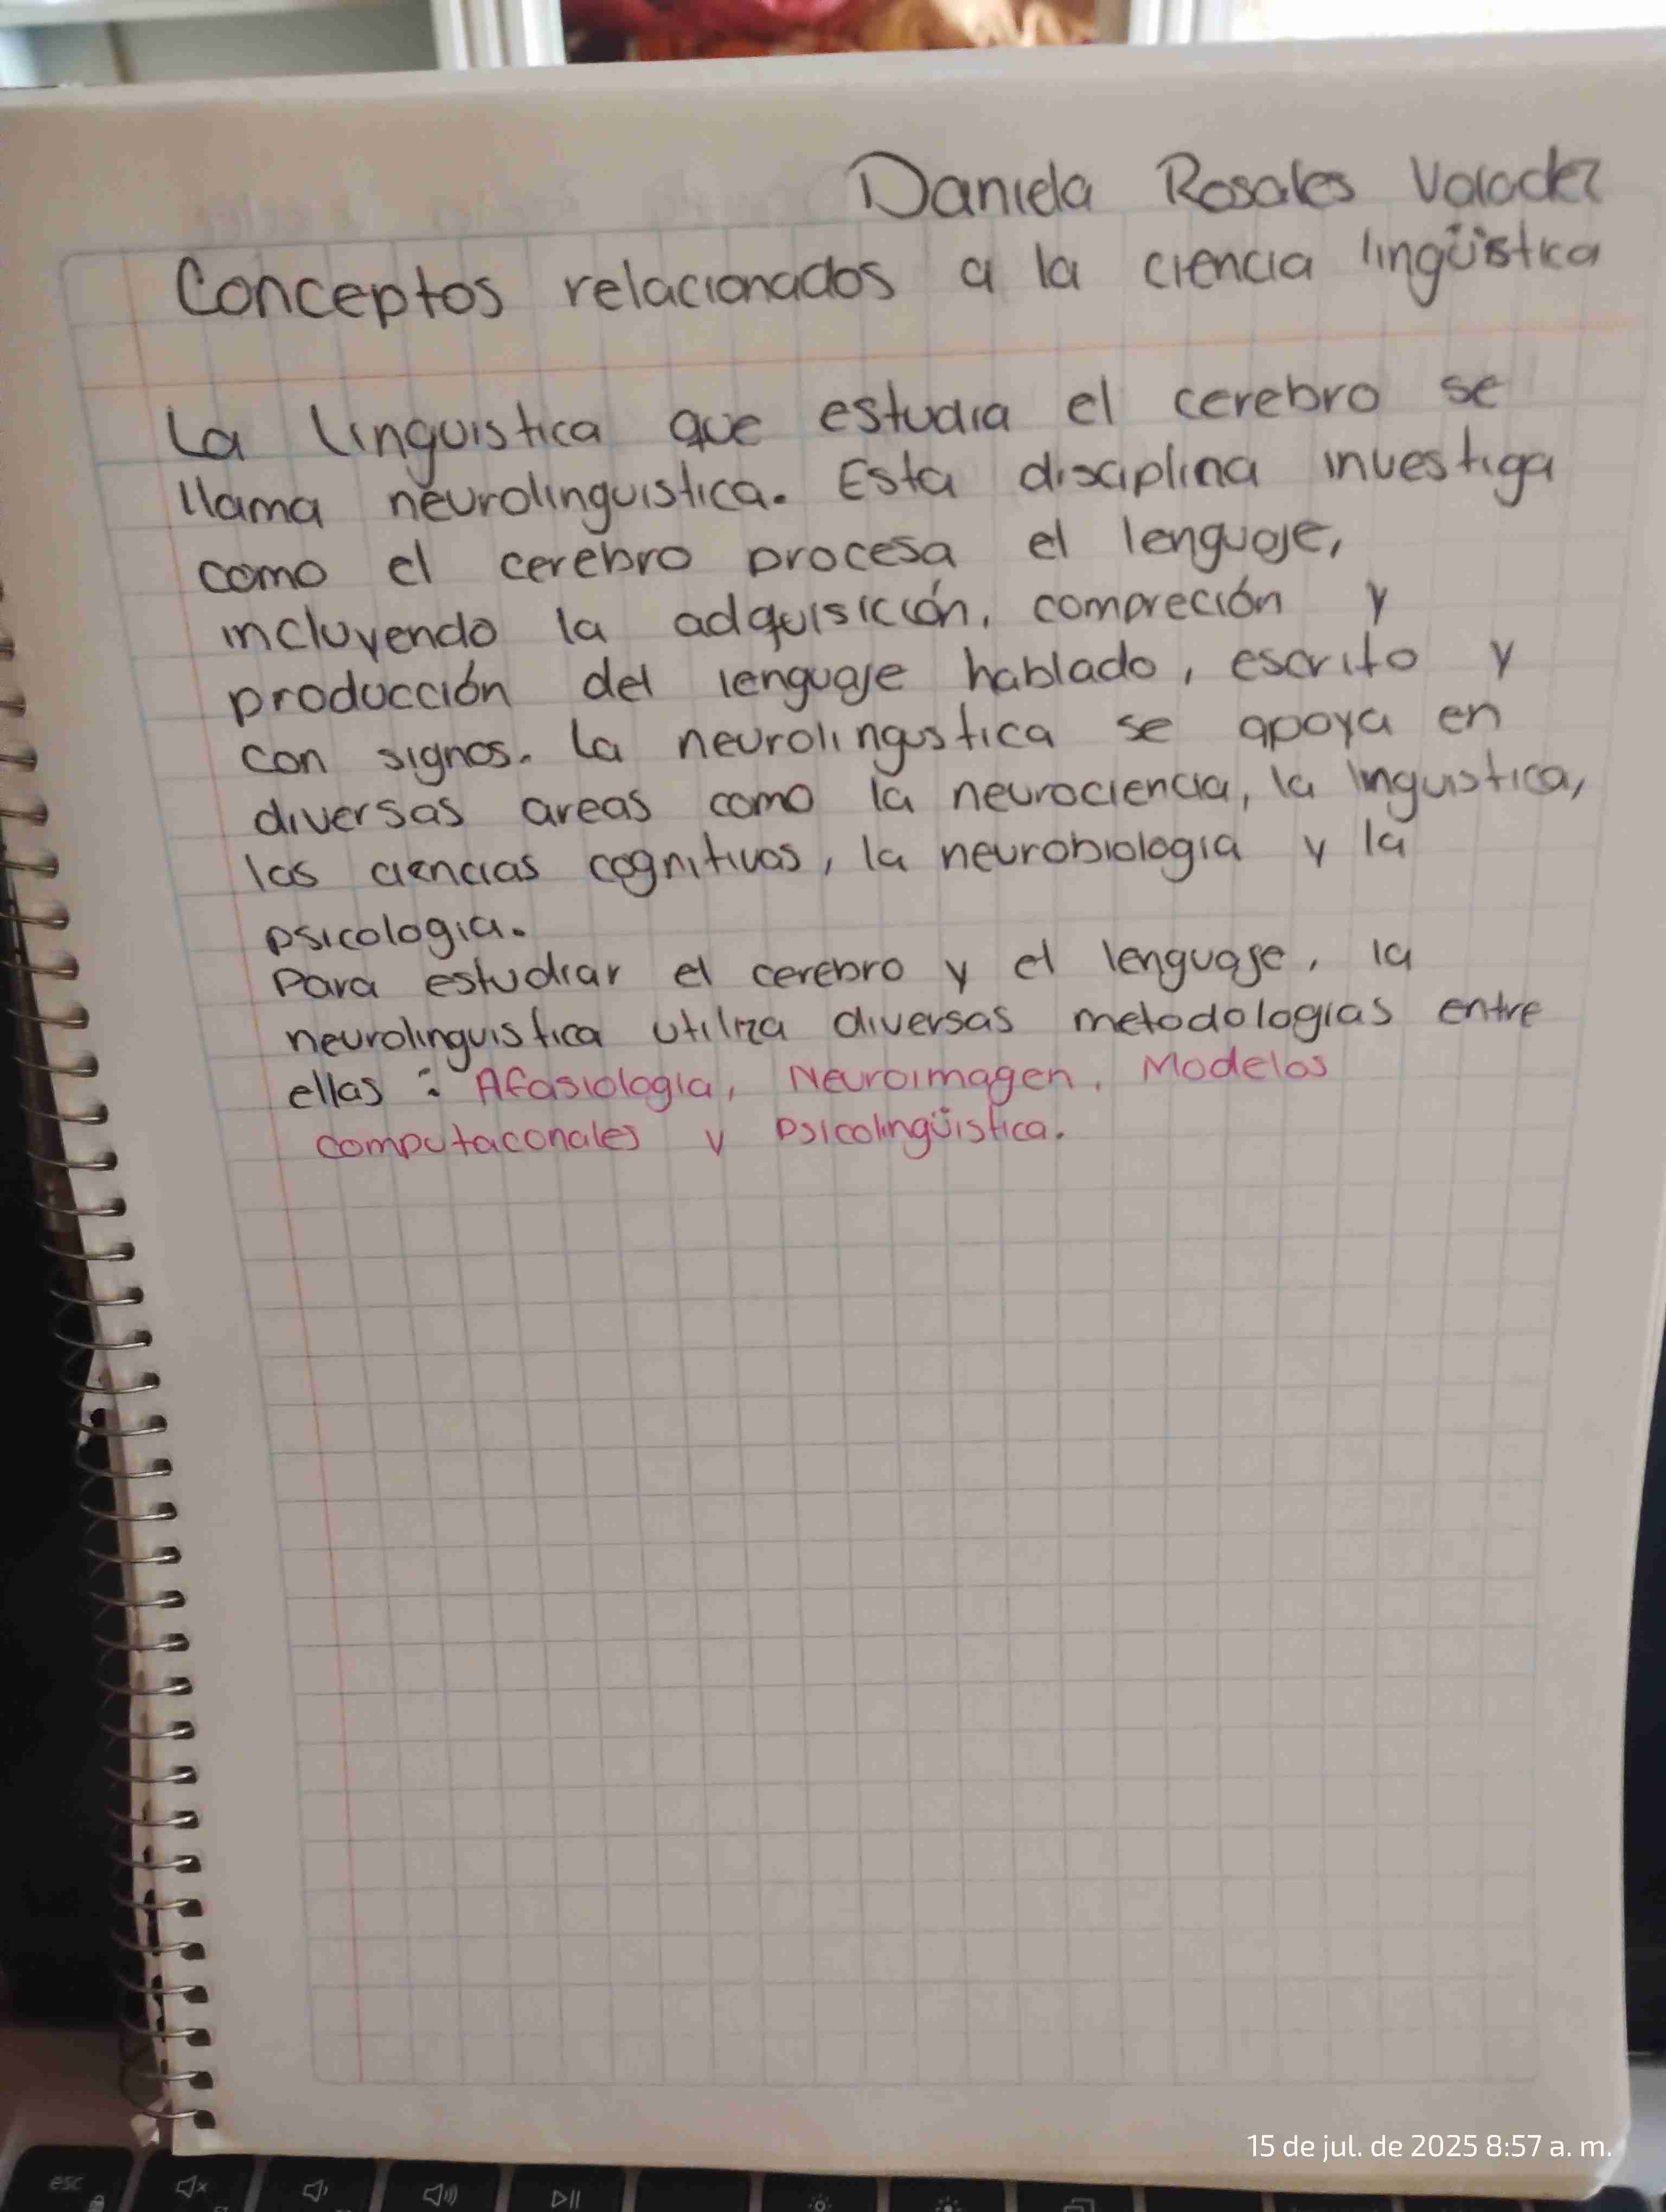 Daniela Rosales Valadez
Conceptos relacionados a la ciencia lingüistica
La linguistica que estudia el cerebro se
llama neurolinguistica. Esta disciplina investiga
como el cerebro procesa el lenguaje,
incluyendo la adquisición, compreción y
producción del lenguaje hablado, escrito y
con signos. La neurolingustica se apoya en
diversas areas como la neurociencia, la linguistica,
las ciencias cognitivas, la neurobiologia y la
psicologia.
Para estudiar el cerebro y el lenguaje, la
neurolinguistica utiliza diversas metodologias entre
ellas: Afasiologia, Neuroimagen, Modelos
computaconales y Psicolingüistica.
15 de jul. de 2025 8:57 a. m.
esc